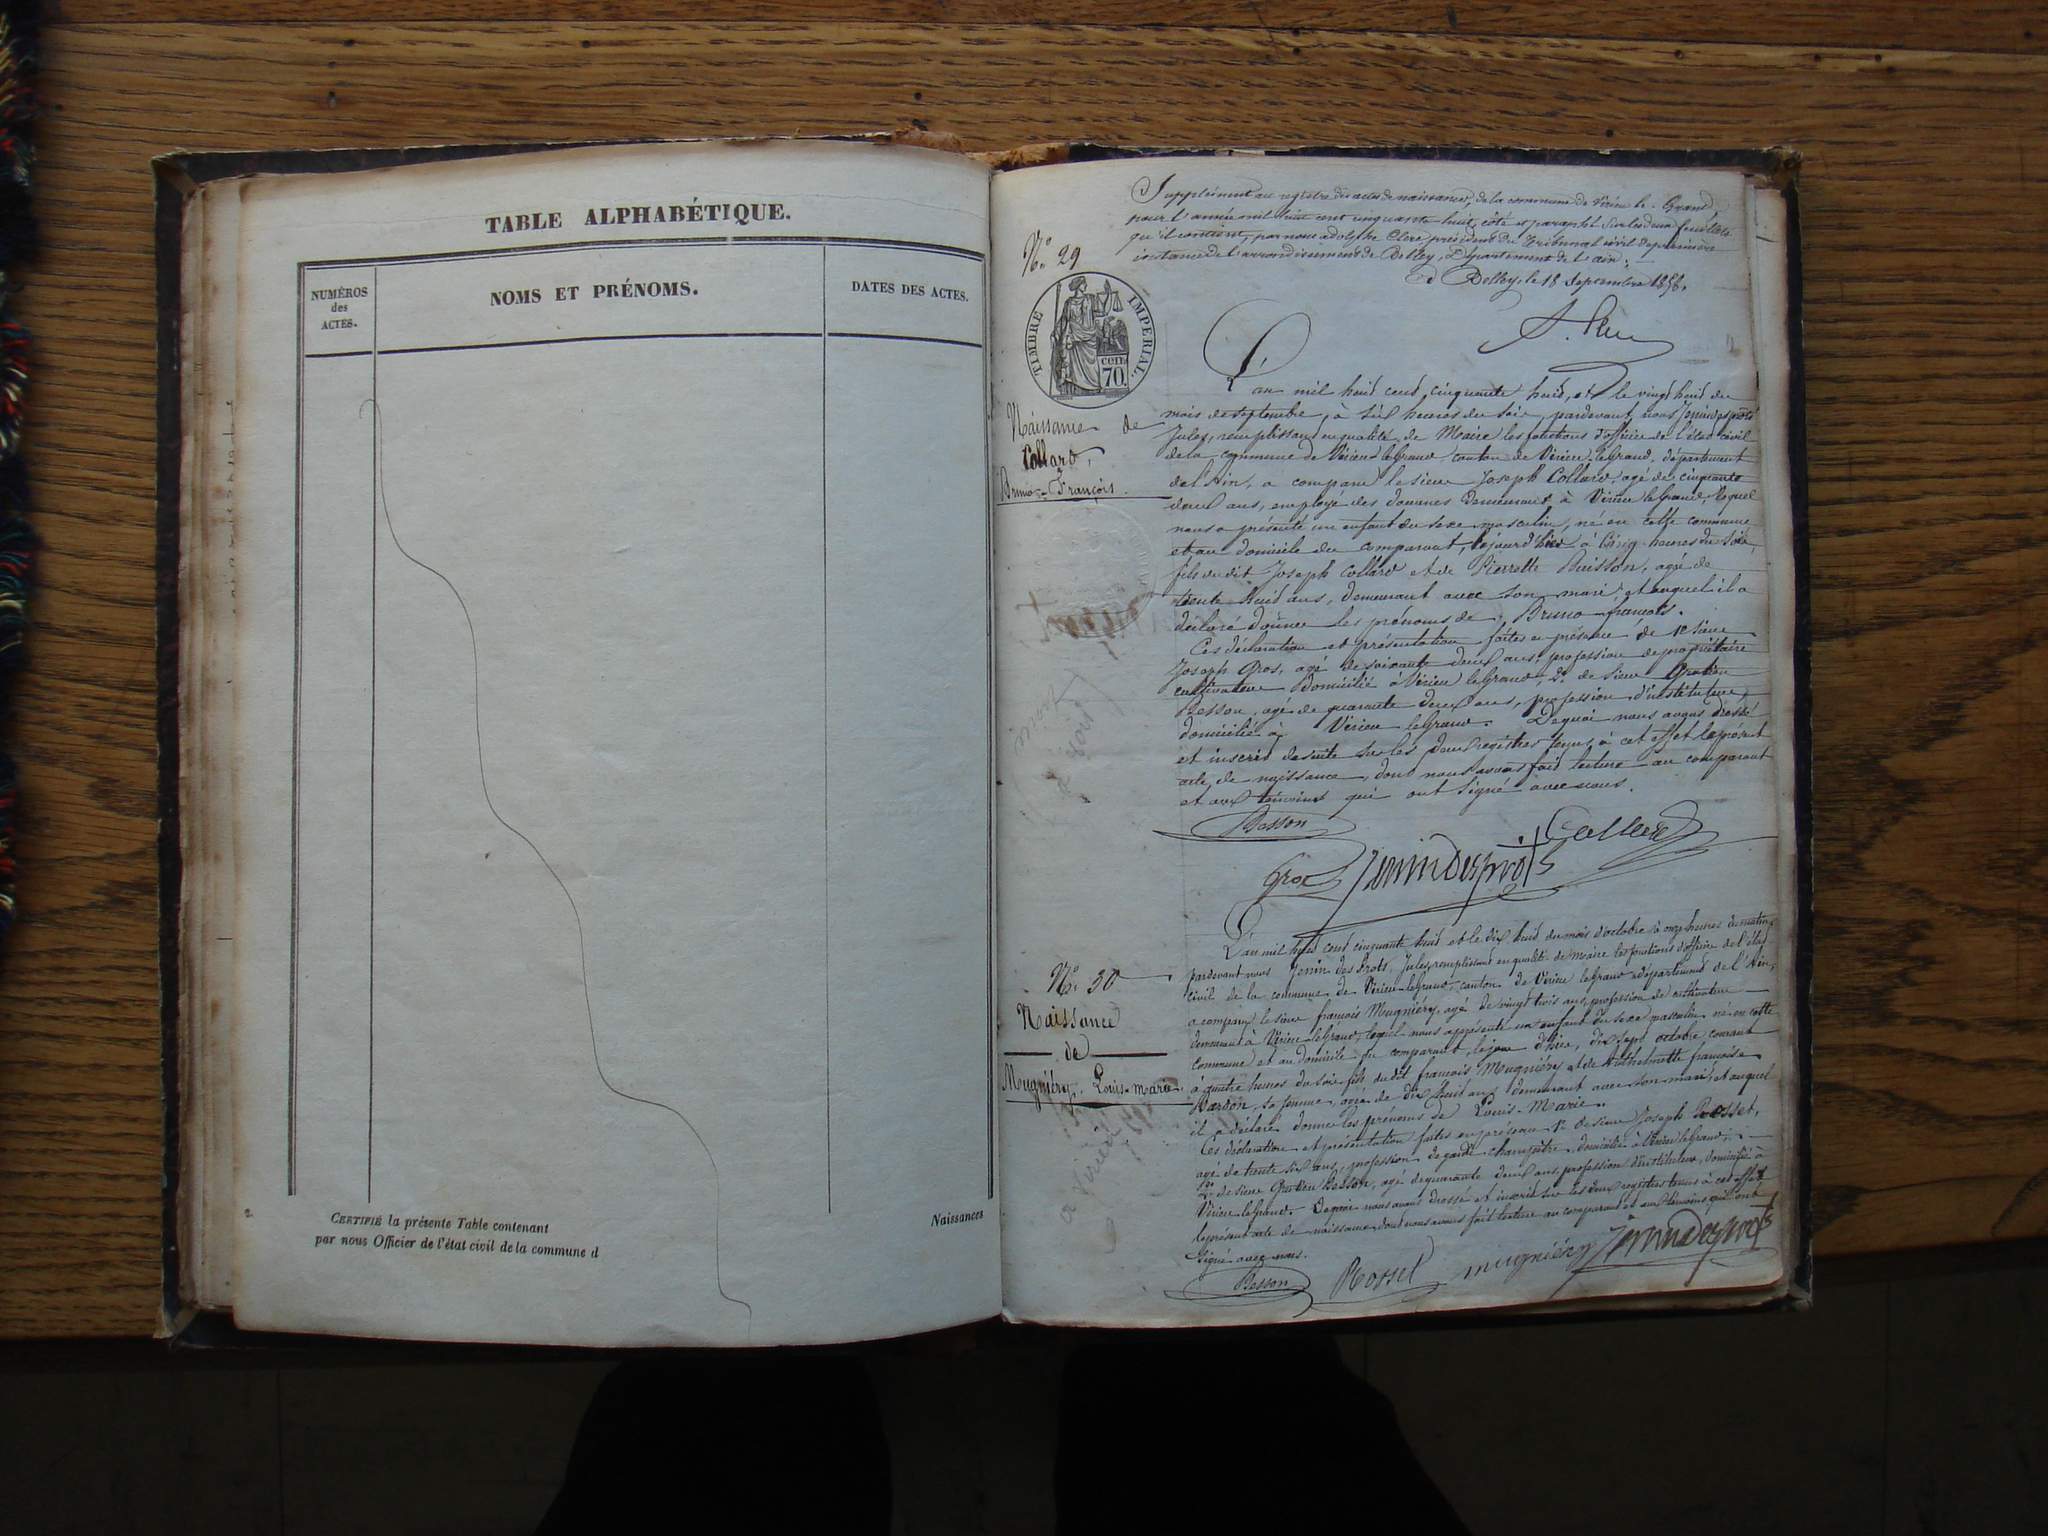 TABLE ALPHABÉTIQUE.
NUMÉROS
des
ACTES.
NOMS ET PRÉNOMS.
DATES DES ACTES.
2.
CERTIFIÉ la présente Table contenant
par nous Officier de l'état civil de la commune d
Naissances
Supplément au registre des actes de naissances, de la commune de Virieu le Grand,
pour l'année mil huit cent cinquante huit, côté et paraphé sur les deux feuillets
qu'il contient, par nous adolphe Clerc président du Tribunal civil de première
instance de l'arrondissement de Belley, Département de l'ain.
à Belley, le 18 septembre 1858.
N° 29
TIMBRE IMPÉRIAL.
cen.
70.
Naissance de
Collard,
Bruno-François.
L'an mil huit cent cinquante huit, et le vingt huit du
mois de septembre, à six heures du soir, pardevant nous Jenin des prots
Jules, remplissant en qualité de Maire les fonctions d'officier de l'état civil
de la commune de Virieu le Grand canton de Virieu-le Grand, département
de l'Ain, a comparu le sieur Joseph Collard, agé de cinquante
deux ans, employé des douanes demeurant à Virieu le Grand, lequel
nous a présenté un enfant du sexe masculin, né en cette commune
et au domicile du comparant, à cinq heures du soir,
fils du dit Joseph Collard et de Pierrette Buisson, agée de
trente huit ans, demeurant avec son mari et auquel il a
déclaré donner les prénoms de Bruno-françois.
Ces déclaration et présentation faites en présence de 1° sieur
Joseph Gros, agé de soixante deux ans, profession de propriétaire
cultivateur domicilié à Virieu le Grand, 2° de sieur
Besson, agé de quarante deux ans, profession d'instituteur,
domicilié à Virieu le Grand. De quoi nous avons dressé
et inscrit de suite sur les deux registres tenus à cet effet le présent
acte de naissance, dont nous avons fait lecture au comparant
et aux témoins qui ont signé avec nous.
Besson
Collard
Gros Jenindesprots
N° 30
Naissance
de
Mugniéry Louis-marie
L'an mil huit cent cinquante huit et le dix huit du mois d'octobre à onze heures du matin,
pardevant nous Jenin des Prots, Jules, remplissant en qualité de maire les fonctions d'officier de l'état
civil de la commune de Virieu-le Grand, canton de Virieu le Grand département de l'Ain,
a comparu le sieur françois Mugniéry, agé de vingt trois ans, profession de cultivateur
demeurant à Virieu-le Grand, lequel nous a présenté un enfant du sexe masculin né en cette
commune et au domicile du comparant, le jour d'hier, dix sept octobre courant
à quatre heures du soir, fils du dit françois Mugniéry et de Anthelmette françoise
Bardon, sa femme, agée de dix huit ans demeurant avec son mari, et auquel
il a déclaré donner les prénoms de Louis-Marie.
Ces déclaration et présentation faites en présence 1° de sieur Joseph Rosset,
agé de trente six ans, profession de garde champêtre, domicilié à Virieu le Grand;
2° de sieur Besson, agé de quarante deux ans, profession d'instituteur, domicilié à
Virieu le Grand. De quoi nous avons dressé et inscrit sur les deux registres tenus à cet effet
le présent acte de naissance, dont nous avons fait lecture au comparant et aux témoins qui ont
signé avec nous.
Besson Rosset mugniéry Jenindesprots